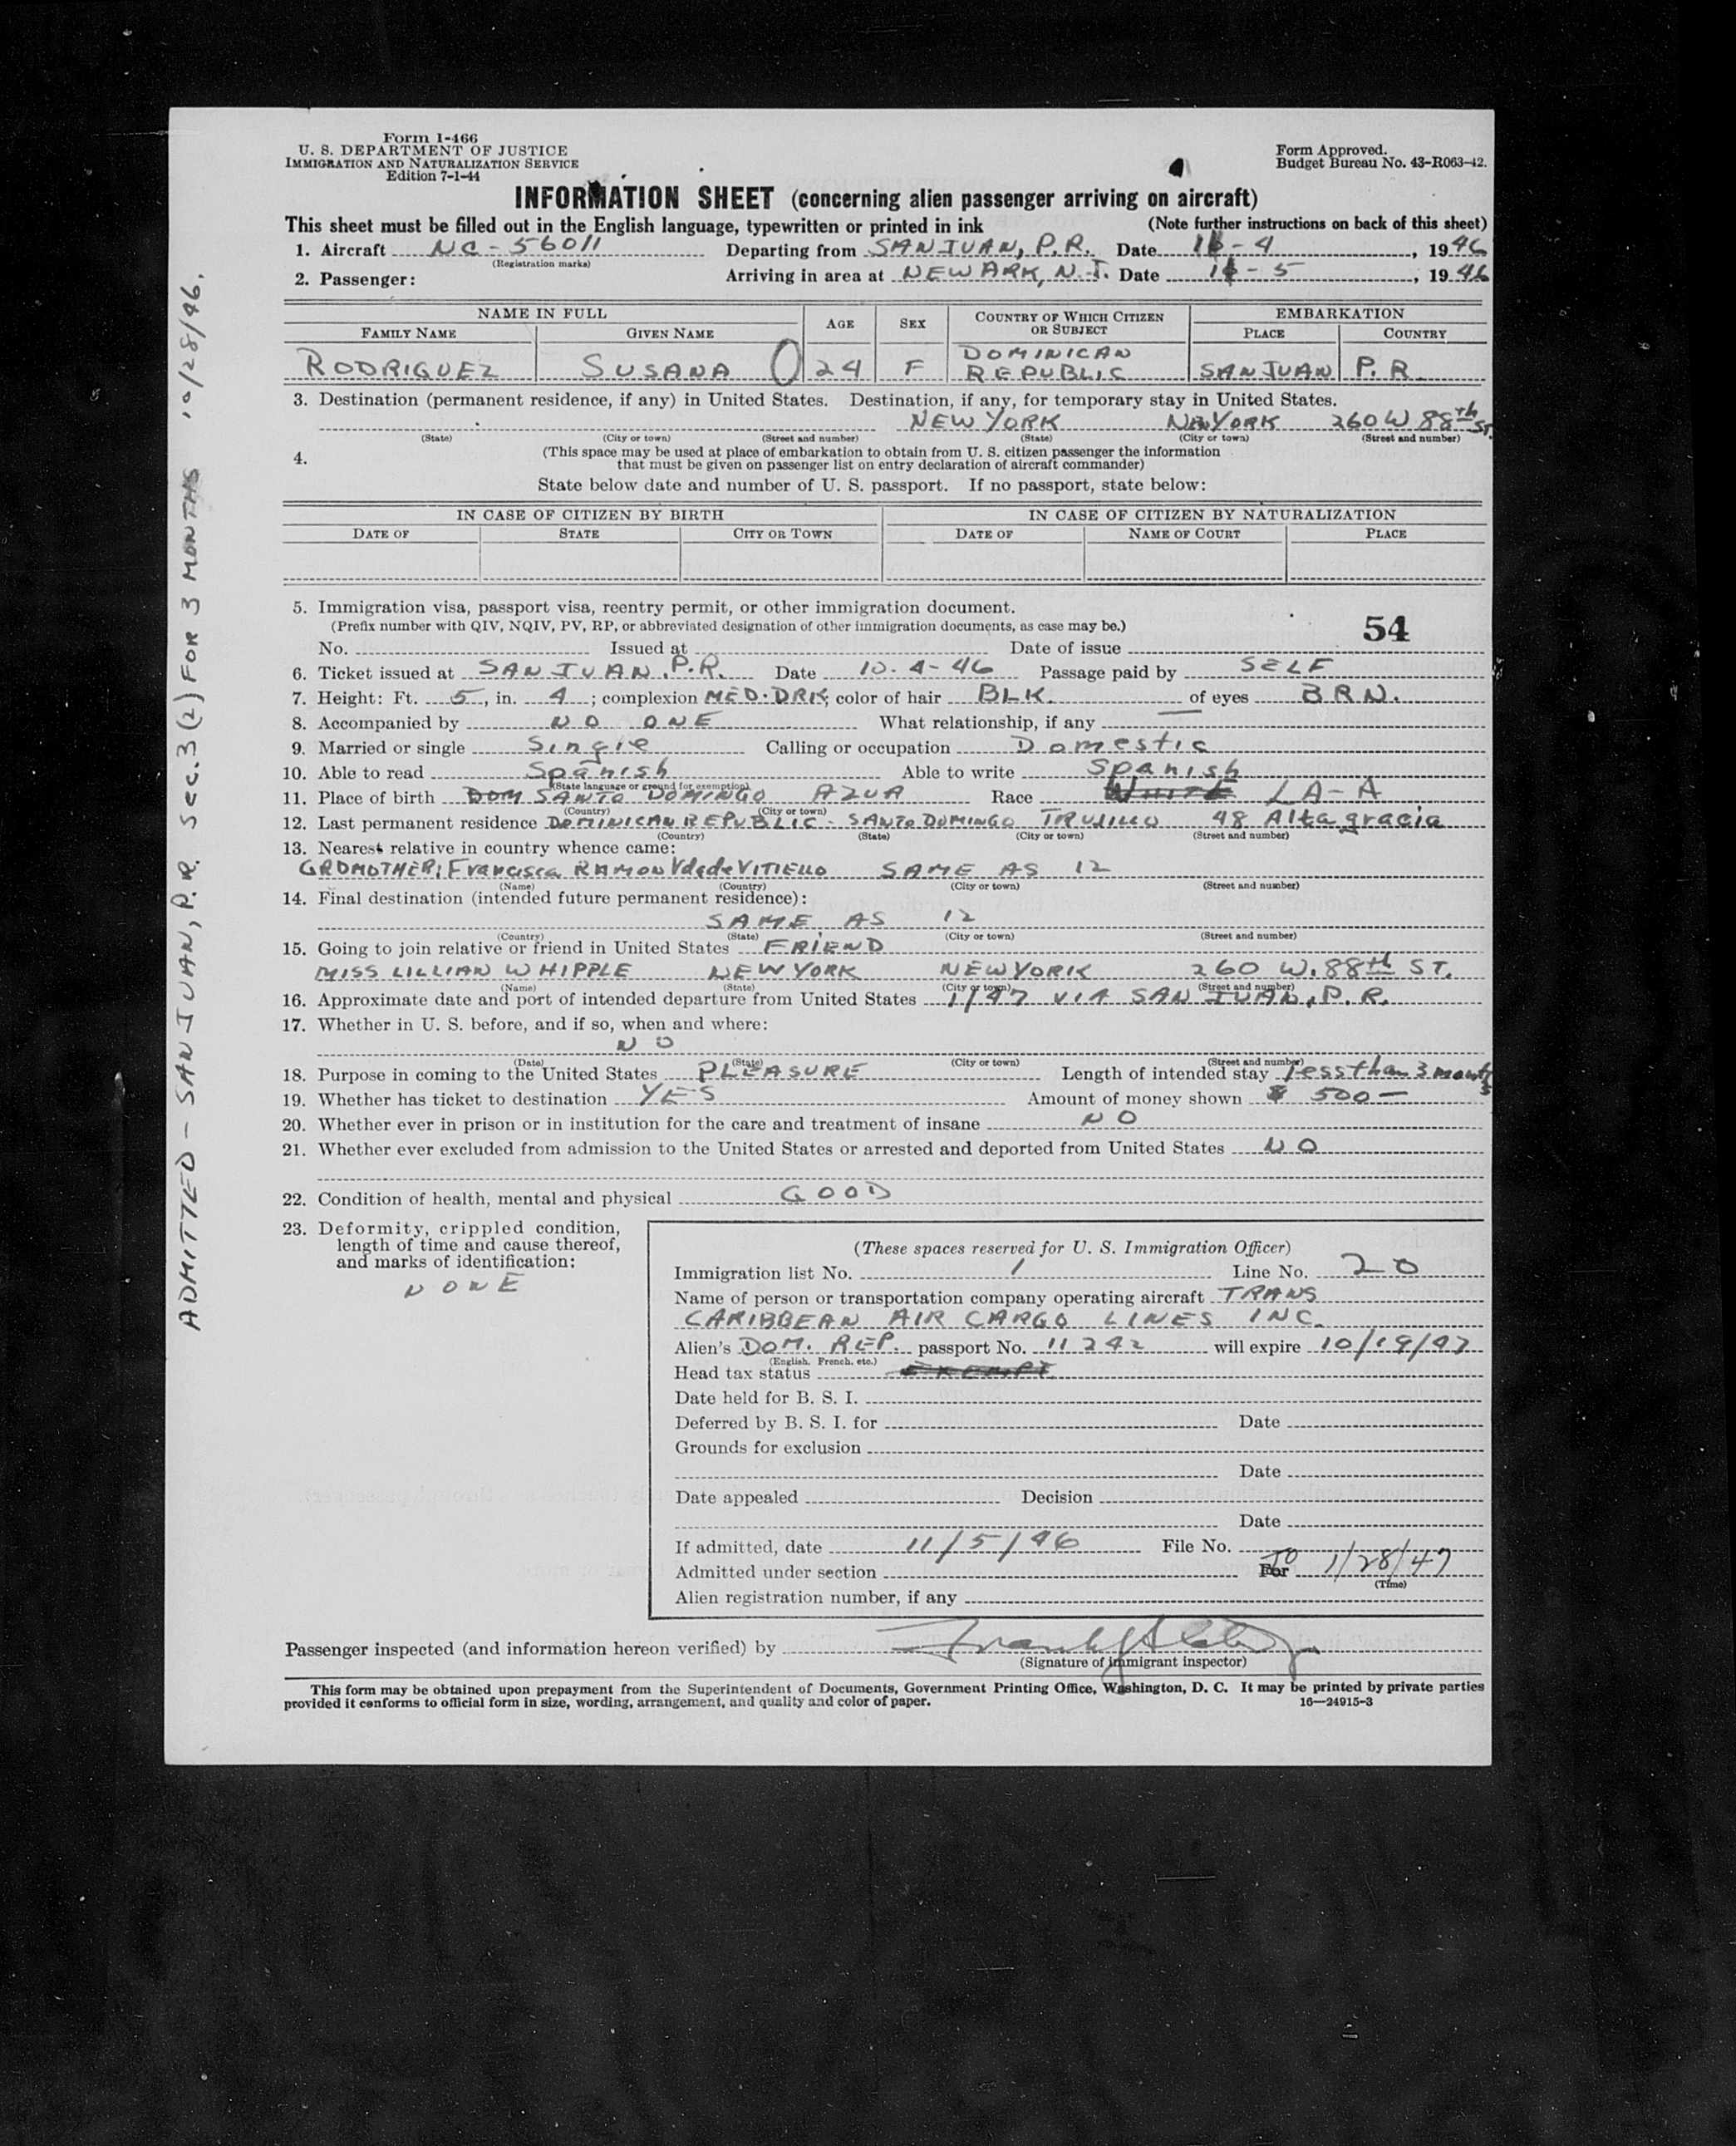 Form I-466
U. S. DEPARTMENT OF JUSTICE
IMMIGRATION AND NATURALIZATION SERVICE
Edition 7-1-44
Form Approved.
Budget Bureau No. 43-R063-42.
INFORMATION SHEET (concerning alien passenger arriving on aircraft)
This sheet must be filled out in the English language, typewritten or printed in ink (Note further instructions on back of this sheet)
1. Aircraft NC-56011 Departing from SAN JUAN, P.R. Date 11-4, 1946
(Registration marks)
2. Passenger: Arriving in area at NEWARK, N.J. Date 11-5, 1946
NAME IN FULL AGE SEX COUNTRY OF WHICH CITIZEN OR SUBJECT EMBARKATION
FAMILY NAME GIVEN NAME PLACE COUNTRY
RODRIGUEZ SUSANA 0 24 F DOMINICAN REPUBLIC SAN JUAN P.R.
3. Destination (permanent residence, if any) in United States. Destination, if any, for temporary stay in United States.
NEW YORK NEW YORK 260 W 88th ST.
(State) (City or town) (Street and number) (State) (City or town) (Street and number)
4. (This space may be used at place of embarkation to obtain from U. S. citizen passenger the information
that must be given on passenger list on entry declaration of aircraft commander)
State below date and number of U. S. passport. If no passport, state below:
IN CASE OF CITIZEN BY BIRTH IN CASE OF CITIZEN BY NATURALIZATION
DATE OF STATE CITY OR TOWN DATE OF NAME OF COURT PLACE
5. Immigration visa, passport visa, reentry permit, or other immigration document.
(Prefix number with QIV, NQIV, PV, RP, or abbreviated designation of other immigration documents, as case may be.) 54
No. Issued at Date of issue
6. Ticket issued at SAN JUAN, P.R. Date 10-4-46 Passage paid by SELF
7. Height: Ft. 5, in. 4; complexion MED. DRK; color of hair BLK. of eyes BRN.
8. Accompanied by NO ONE What relationship, if any
9. Married or single Single Calling or occupation Domestic
10. Able to read Spanish Able to write Spanish
(State language or ground for exemption)
11. Place of birth DOM SANTO DOMINGO AZUA Race White LA-A
(Country) (City or town)
12. Last permanent residence DOMINICAN REPUBLIC - SANTO DOMINGO TRUJILLO 48 Altagracia
(Country) (State) (City or town) (Street and number)
13. Nearest relative in country whence came:
GRDMOTHER: Francisca RAMON Vda de VITIELLO SAME AS 12
(Name) (Country) (City or town) (Street and number)
14. Final destination (intended future permanent residence):
SAME AS 12
(Country) (State) (City or town) (Street and number)
15. Going to join relative or friend in United States FRIEND
MISS LILLIAN WHIPPLE NEW YORK NEW YORK 260 W. 88th ST.
(Name) (State) (City or town) (Street and number)
16. Approximate date and port of intended departure from United States 1/47 VIA SAN JUAN, P.R.
17. Whether in U. S. before, and if so, when and where:
NO
(Date) (State) (City or town) (Street and number)
18. Purpose in coming to the United States PLEASURE Length of intended stay less than 3 months
19. Whether has ticket to destination YES Amount of money shown $ 500-
20. Whether ever in prison or in institution for the care and treatment of insane NO
21. Whether ever excluded from admission to the United States or arrested and deported from United States NO
22. Condition of health, mental and physical GOOD
23. Deformity, crippled condition,
length of time and cause thereof,
and marks of identification:
NONE
(These spaces reserved for U. S. Immigration Officer)
Immigration list No. 1 Line No. 20
Name of person or transportation company operating aircraft TRANS
CARIBBEAN AIR CARGO LINES INC.
Alien's DOM. REP. passport No. 11242 will expire 10/19/47
(English, French, etc.)
Head tax status EXEMPT
Date held for B. S. I.
Deferred by B. S. I. for Date
Grounds for exclusion
Date
Date appealed Decision
Date
If admitted, date 11/5/46 File No.
Admitted under section For TO 1/28/47
(Time)
Alien registration number, if any
Passenger inspected (and information hereon verified) by
(Signature of immigrant inspector)
This form may be obtained upon prepayment from the Superintendent of Documents, Government Printing Office, Washington, D. C. It may be printed by private parties
provided it conforms to official form in size, wording, arrangement, and quality and color of paper. 16—24915-3
ADMITTED - SAN JUAN, P.R. Sec. 3(2) FOR 3 MONTHS 10/28/46.